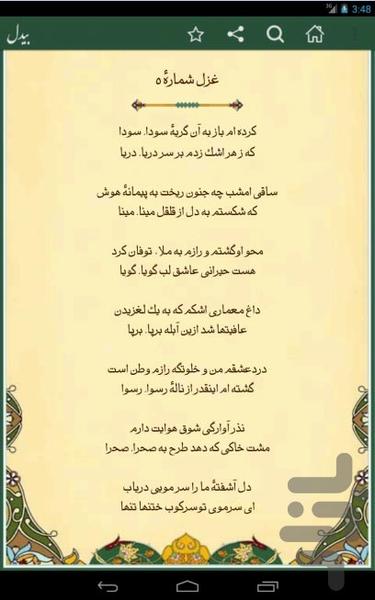 3:48
بیدل
غزل شمارهٔ ۵
کرده ام باز به آن گریهٔ سودا، سودا
که ز هر اشك زدم بر سر دریا، دریا
ساقی امشب چه جنون ریخت به پیمانهٔ هوش
که شکستم به دل از قلقل مینا، مینا
محو اوگشتم و رازم به ملا، توفان کرد
هست حیرانی عاشق لب گویا، گویا
داغ معماری اشکم که به یك لغزیدن
عافیتها شد ازین آبله برپا، برپا
دردعشقم من و خلوتگه رازم وطن است
گشته ام اینقدر از نالهٔ رسوا، رسوا
نذر آوارگی شوق هوایت دارم
مشت خاکی که دهد طرح به صحرا، صحرا
دل آشفتهٔ ما را سر مویی دریاب
ای سرموی توسرکوب ختنها تنها